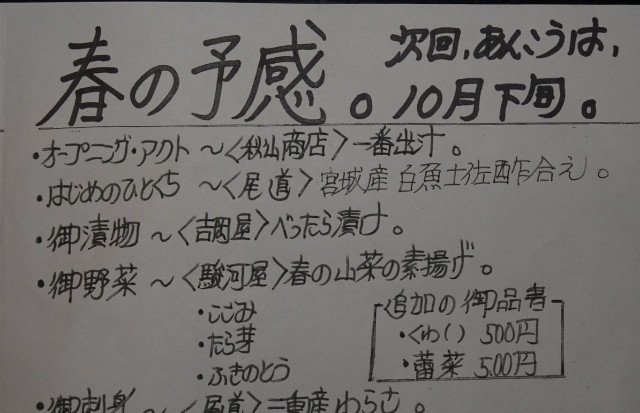 春の予感。
次回、あんこうは、
10月下旬。
・オープニング・アクト 〜〈秋山商店〉一番出汁。
・はじめのひとくち 〜〈尾道〉宮城産 白魚土佐酢合え。
・御漬物 〜〈吉岡屋〉べったら漬け。
・御野菜 〜〈駿河屋〉春の山菜の素揚げ。
・こごみ
・たら芽
・ふきのとう
追加の御品書
・くわい 500円
・蕾菜 500円
・御刺身 〜〈尾道〉三重産わらさ。